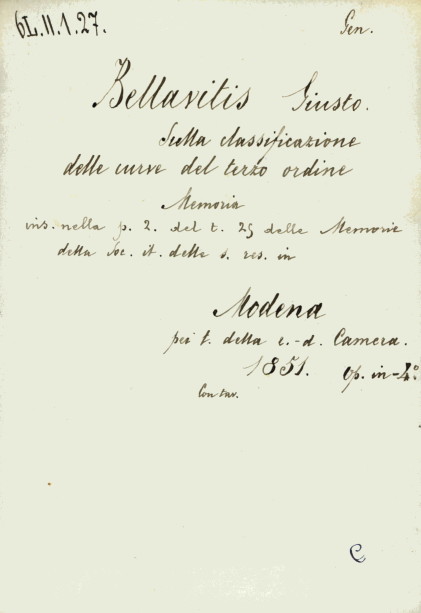 6L.II.1.27.
Gen.
Bellavitis Giusto.
Sulla classificazione
delle curve del terzo ordine
Memoria
ins. nella p. 2. del t. 25 delle Memorie
della Soc. it. delle s. res. in
Modena
pei t. della r.-d. Camera.
1851. Op. in-4°
Con tav.